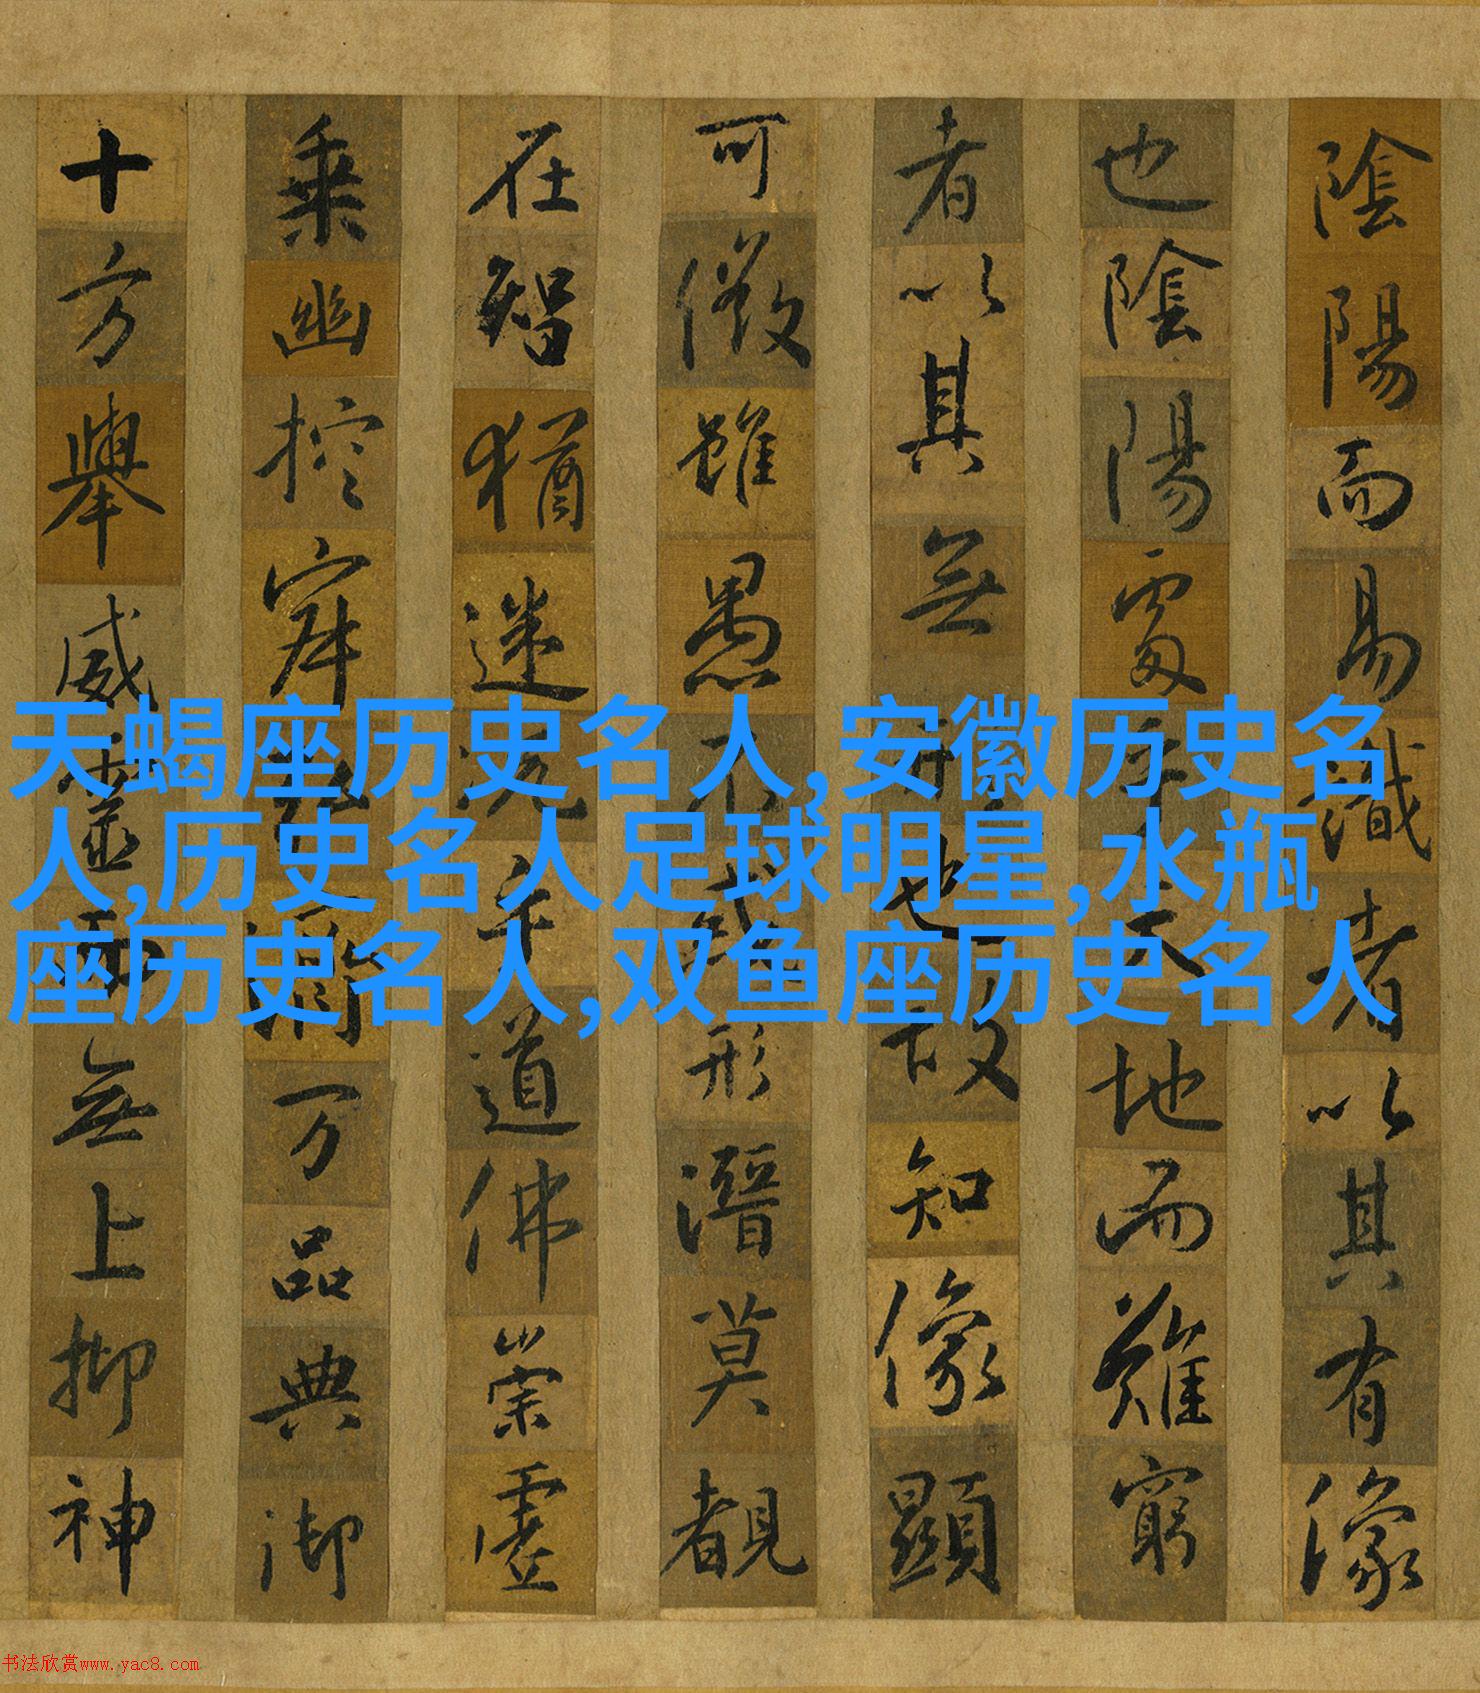 陰陽而易識者以其有像
也陰陽處乎天地而難窮
者以其無形也故知像顯
可徵雖愚不惑形潛莫覩
在智猶迷況乎道佛崇虛
乘幽控寂弘濟万品典御
十方舉威靈而無上抑神
天蝎座历史名人,安徽历史名
人,历史名人足球明星,水瓶
座历史名人,双鱼座历史名人
书法欣赏www.yac8.com